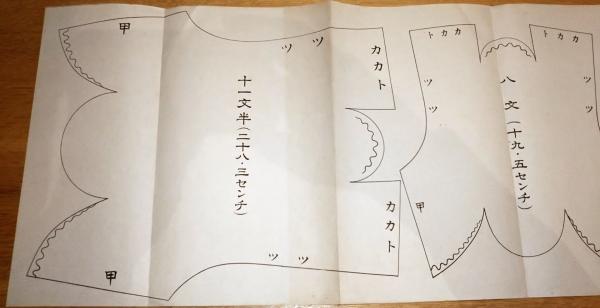 甲
ツ ツ
カカト
十一文半(二十八・三センチ)
カカト
ツ ツ
甲
カカト
カカト
ツツ
ツツ
八文(十九・五センチ)
甲